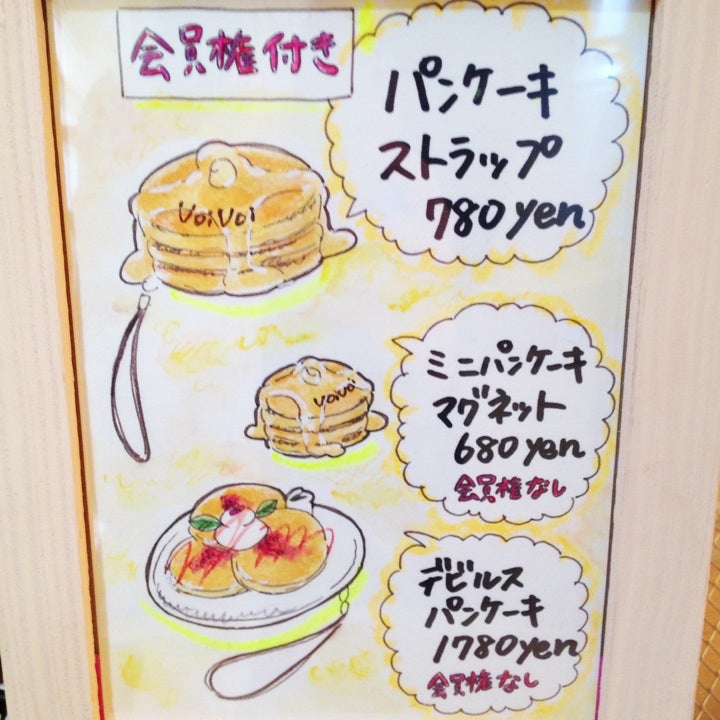 会員権付き
パンケーキ
ストラップ
780yen
VoiVoi
ミニパンケーキ
マグネット
680yen
会員権なし
VoiVoi
デビルス
パンケーキ
1780yen
会員権なし